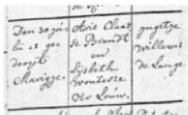 Den 20 ja
li is ge
doopt
Marigje.
Arie Claas
de Brandt
en
Lijsbeth
Wouterse
Ver Louw.
Willems
de Lange.